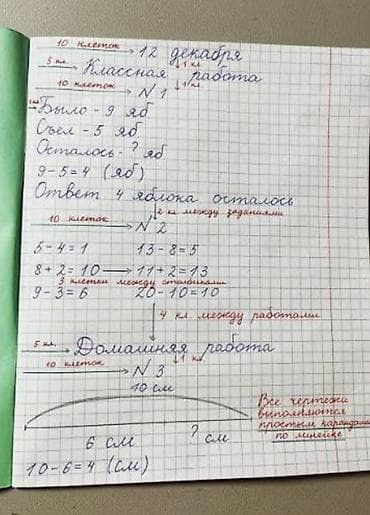 10 клеток 12 декабря
5 кл. Классная работа 1 кл.
10 клеток N 1 1 кл.
Было - 9 яб
Съел - 5 яб
Осталось - ? яб
9 - 5 = 4 (яб)
Ответ 4 яблока осталось
2 кл между заданиями
10 клеток N 2
5 - 4 = 1 13 - 8 = 5
8 + 2 = 10 11 + 2 = 13
3 клетки между столбиками
9 - 3 = 6 20 - 10 = 10
4 кл. между работами
5 кл. Домашняя работа
10 клеток N 3 1 кл.
10 см
Все чертежи
выполняются
простым карандашом
по линейке
6 см ? см
10 - 6 = 4 (см)